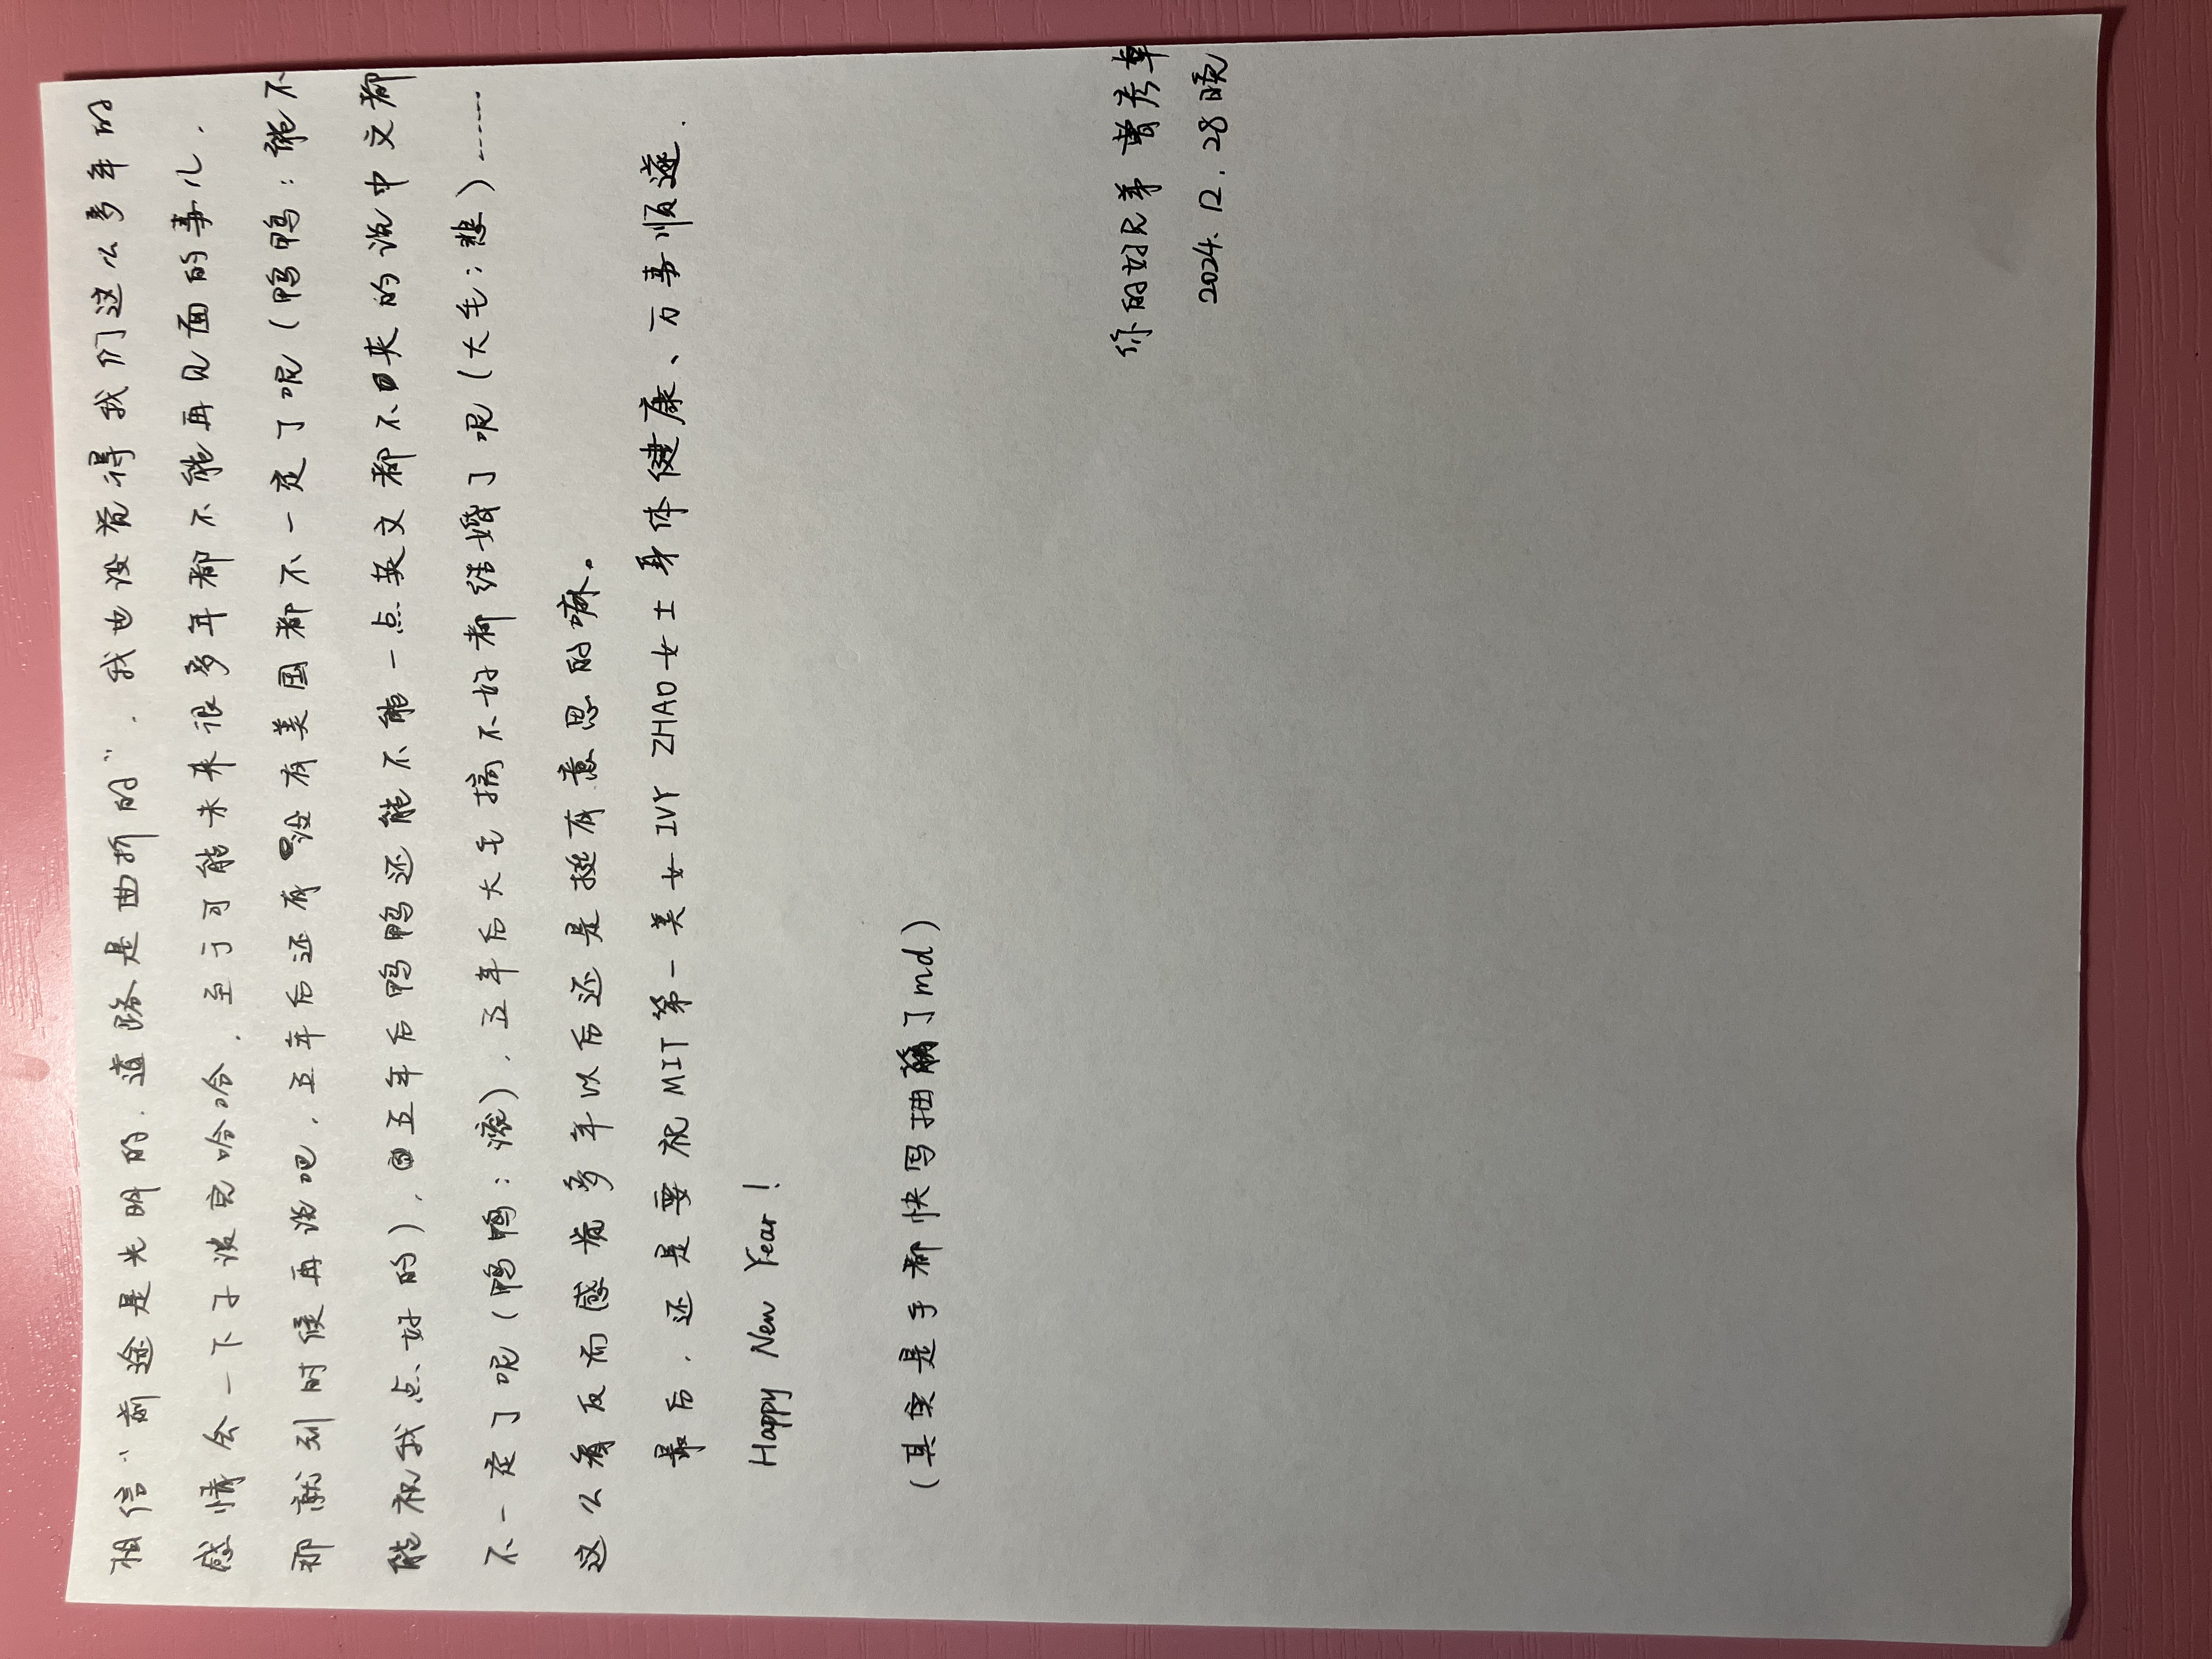 相信“前途是光明的，道路是曲折的”，我也没觉得我们这么多年的
感情会一下子谈完哈哈，至于可能未来很多年都不能再见面的事儿，
那就到时候再说吧，五年后还有没有美国都不一定了呢（鸭鸭：能不
能祝我点好的），五年后鸭鸭还能不能一点英文都不夹的说中文都
不一定了呢（鸭鸭：滚），五年后大毛搞不好都结婚了呢（大毛：悲）……
这么看反而感觉多年以后还是挺有意思的嘛。
最后，还是要祝MIT第一美女IVY ZHAO女士身体健康、万事顺遂，
Happy New Year！
（其实是手都快写抽筋了md）
你的好兄弟 曹彦卓
2024.12.28晚